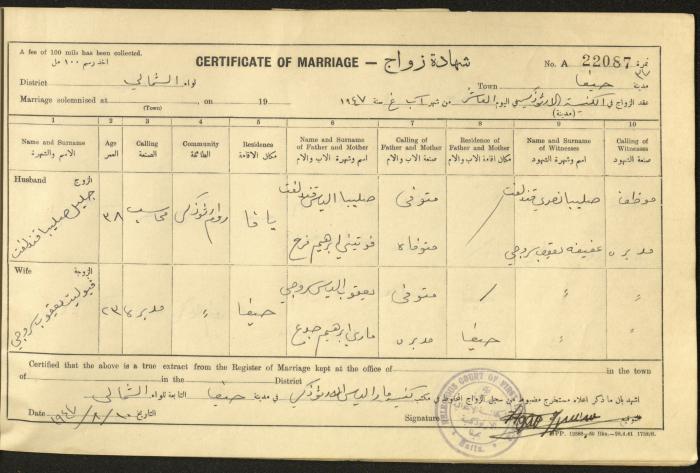 A fee of 100 mils has been collected.
أخذ رسم ١٠٠ مل
CERTIFICATE OF MARRIAGE — شهادة زواج
No. A 22087 نمرة
District
لواء الشمالي
Town حيفا مدينة
Marriage solemnised at , on 19
(Town)
عقد الزواج في الكنيسة الارثوذكسية اليوم العاشر من شهر آب سنة ١٩٤٧
(مدينة)
1 2 3 4 5 6 7 8 9 10
Name and Surname
الاسم والشهرة
Age
العمر
Calling
الصنعة
Community
الطائفة
Residence
مكان الاقامة
Name and Surname of Father and Mother
اسم وشهرة الاب والام
Calling of Father and Mother
صنعة الاب والام
Residence of Father and Mother
مكان اقامة الاب والام
Name and Surname of Witnesses
اسم وشهرة الشهود
Calling of Witnesses
صنعة الشهود
Husband الزوج
جميل صليبا قندلفت
٣٨
محاسب
روم ارثوذكس
يافا
صليبا الياس قندلفت
متوفي
صليبا نصري قندلفت
موظف
ابرهيم فرح
متوفاة
عفيفه يعقوب سروجي
مدبرة
Wife الزوجة
فيوليت يعقوب سروجي
٢٣
مدبرة
حيفا
يعقوب الياس سروجي
متوفي
ماري ابرهيم جدع
مدبرة
حيفا
Certified that the above is a true extract from the Register of Marriage kept at the office of in the town
of in the District
اشهد بان ما ذكر اعلاه مستخرج مضبوط من سجل الزواج المحفوظ في مكتب كنيسة مار الياس الارثوذكسي في مدينة حيفا التابعة للواء الشمالي
Date ١٩٤٧/٨/١٠ التاريخ
Signature توقيع
Haifa.